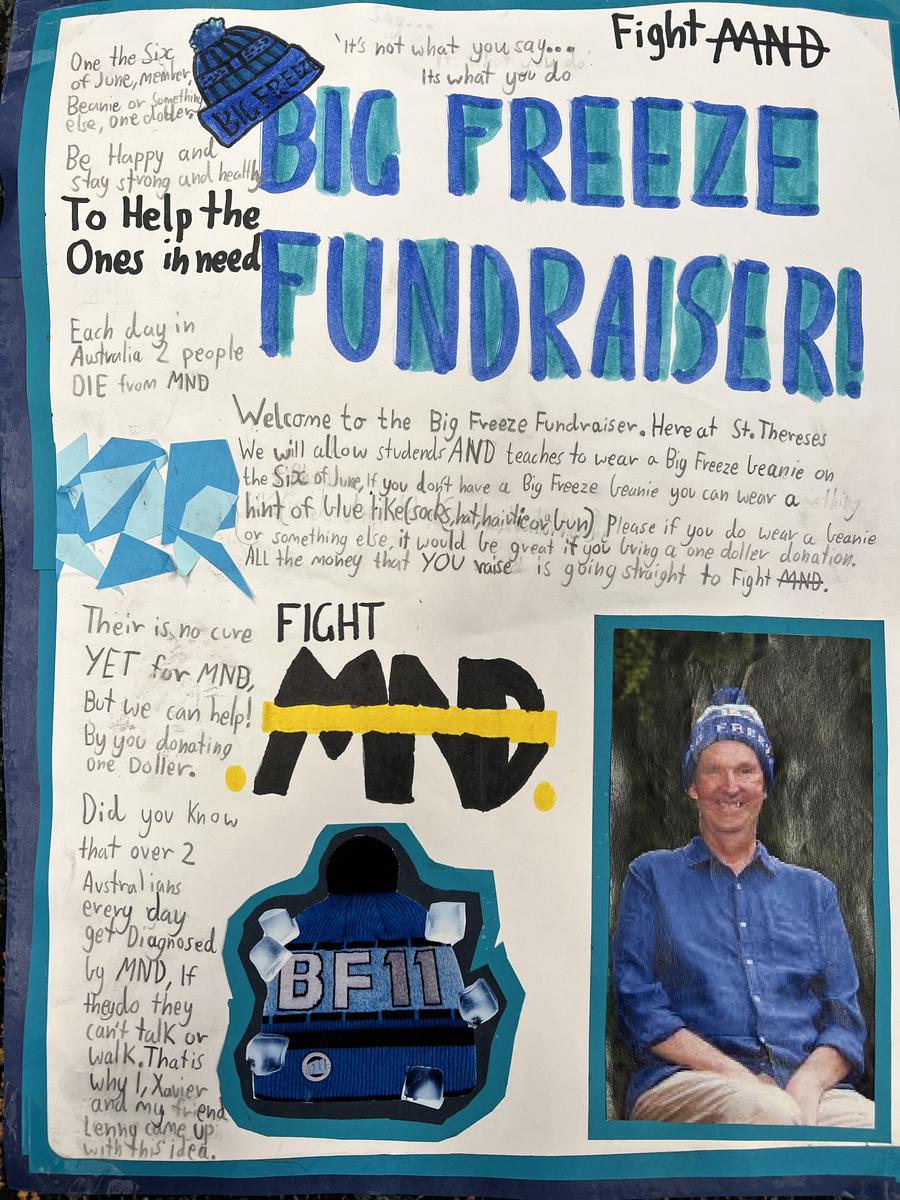 One the Six
of June, member,
Beanie or Something
else, one doller.
Be Happy and
stay strong and healthy
To Help the
Ones in need
BIG FREEZE
'It's not what you say...
Its what you do
Fight MND
BIG FREEZE
FUNDRAISER!
Each day in
Australia 2 people
DIE from MND
Welcome to the Big Freeze Fundraiser. Here at St. Thereses
We will allow studends AND teaches to wear a Big Freeze beanie on
the Six of June, If you don't have a Big Freeze beanie you can wear a
hint of blue like (socks, hat, hair tie or, bun) Please if you do wear a beanie
or something else, it would be great if you bring a one doller donation.
ALL the money that YOU raise is going straight to Fight MND.
Their is no cure
YET for MND,
But we can help!
By you donating
one Doller.
FIGHT
MND
Did you Know
that over 2
Australians
every day
get Diagnosed
by MND, If
they do they
can't talk or
walk. That is
why I, Xavier
and my friend
Lenny came up
with this idea.
BF11
FREEZE